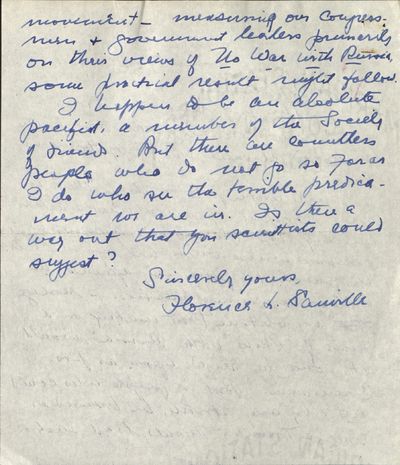 movement – measuring our Congress-
men & government leaders primarily
on their views of No War with Russia,
some practical result might follow.
I happen to be an absolute
pacifist, a member of the Society
of Friends. But there are countless
people who do not go so far as
I do who see the terrible predica-
ment we are in. Is there a
way out that you scientists could
suggest?
Sincerely yours,
Florence L. Sanville